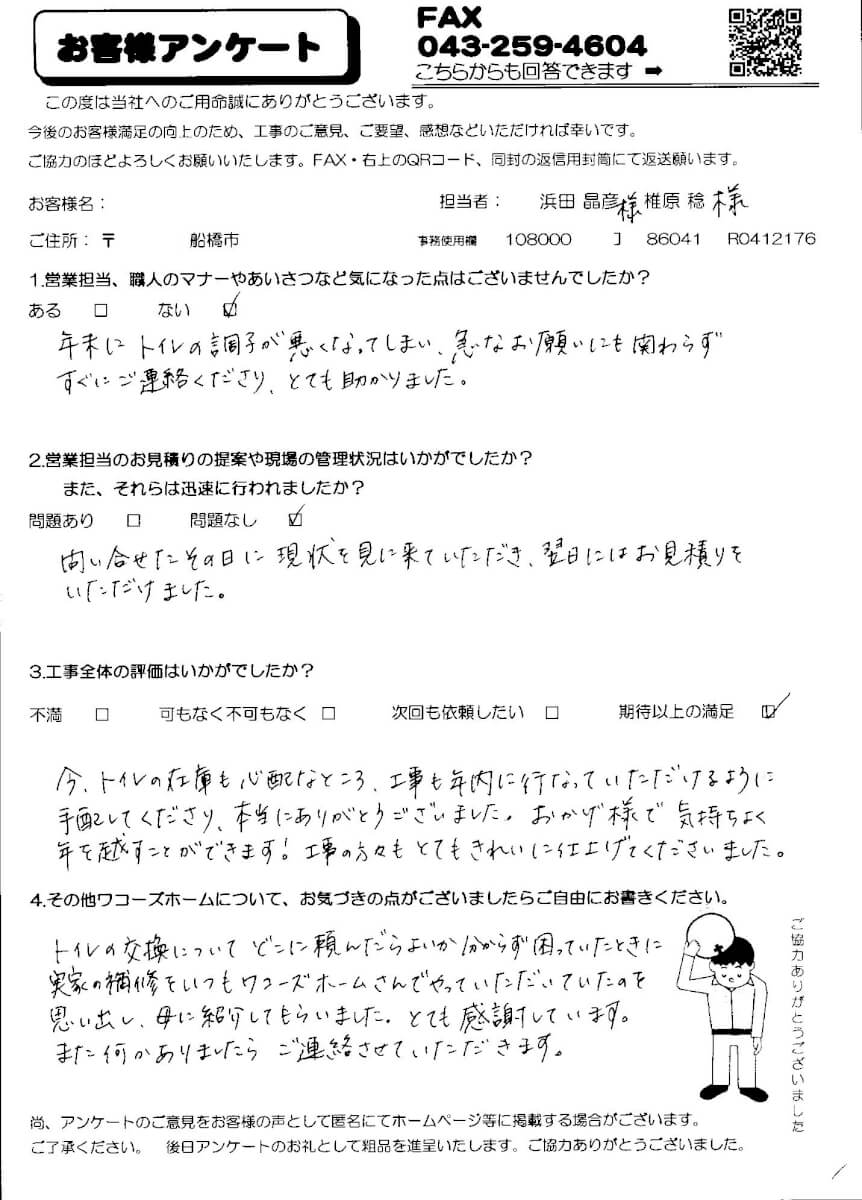 お客様アンケート
FAX
043-259-4604
こちらからも回答できます ➡
この度は当社へのご用命誠にありがとうございます。
今後のお客様満足の向上のため、工事のご意見、ご要望、感想などいただければ幸いです。
ご協力のほどよろしくお願いいたします。FAX・右上のQRコード、同封の返信用封筒にて返送願います。
お客様名： 担当者： 浜田 晶彦様 椎原 稔 様
ご住所：〒 船橋市 事務使用欄 108000 J 86041 R0412176
1.営業担当、職人のマナーやあいさつなど気になった点はございませんでしたか？
ある □ ない ☑
年末にトイレの調子が悪くなってしまい、急なお願いにも関わらず
すぐにご連絡くださり、とても助かりました。
2.営業担当のお見積りの提案や現場の管理状況はいかがでしたか？
また、それらは迅速に行われましたか？
問題あり □ 問題なし ☑
問い合せたその日に現状を見に来ていただき、翌日にはお見積りを
いただけました。
3.工事全体の評価はいかがでしたか？
不満 □ 可もなく不可もなく □ 次回も依頼したい □ 期待以上の満足 ☑
今、トイレの在庫も心配なところ、工事も年内に行なっていただけるように
手配してくださり、本当にありがとうございました。おかげ様で気持ちよく
年を越すことができます！工事の方々もとてもきれいに仕上げてくださいました。
4.その他ワコーズホームについて、お気づきの点がございましたらご自由にお書きください。
トイレの交換についてどこに頼んだらよいか分からず困っていたときに
実家の補修をいつもワコーズホームさんでやっていただいていたのを
思い出し、母に紹介してもらいました。とても感謝しています。
また何かありましたらご連絡させていただきます。
ご協力ありがとうございました
尚、アンケートのご意見をお客様の声として匿名にてホームページ等に掲載する場合がございます。
ご了承ください。 後日アンケートのお礼として粗品を進呈いたします。ご協力ありがとうございました。